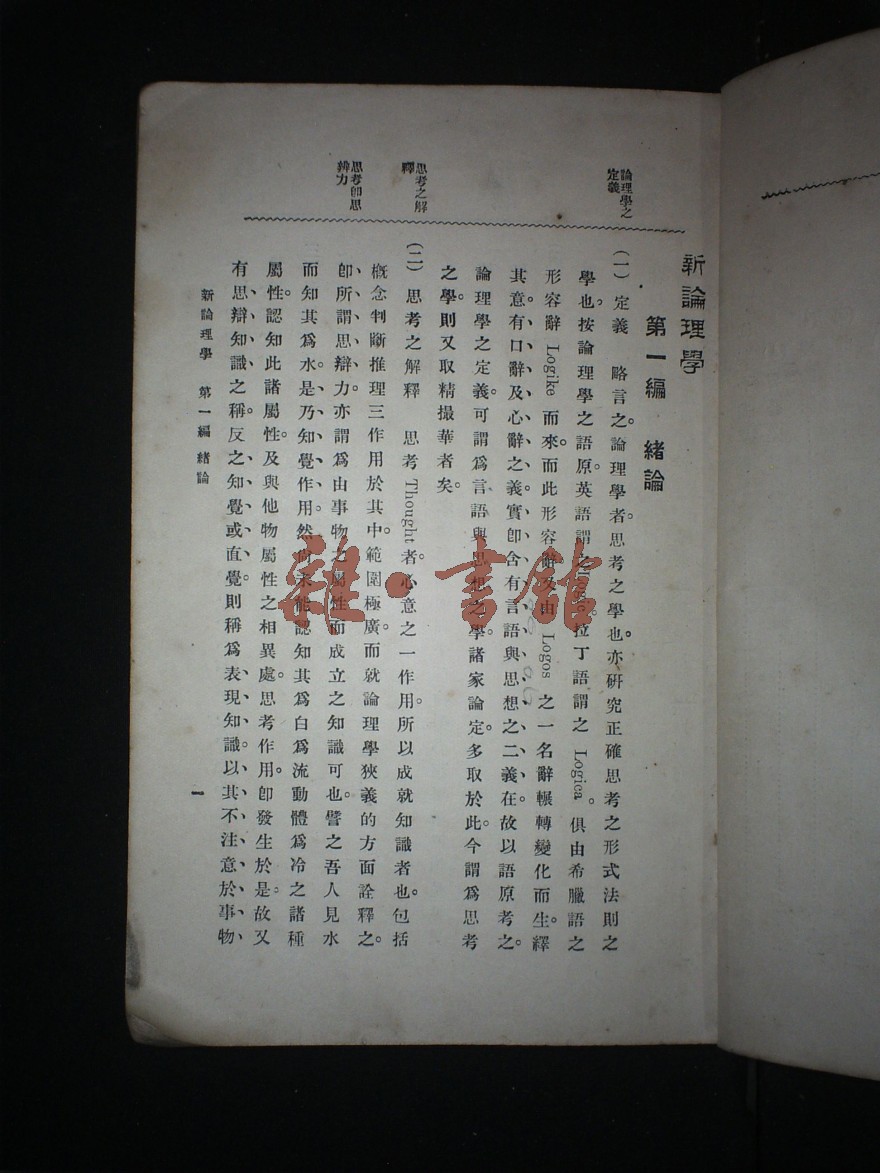 新論理學
第一編 緒論
論理學之
定義
(一) 定義 略言之。論理學者。思考之學也。亦研究正確思考之形式法則之
學也。按論理學之語原。英語謂之 拉丁語謂之 Logica。俱由希臘語之
形容辭 Logike 而來。而此形容辭及由 Logos 之一名辭輾轉變化而生。繹
其意。有口辭及心辭之義。實卽含有言語與思想之二義在。故以語原考之。
論理學之定義。可謂爲言語與思想之學。諸家論定。多取於此。今謂爲思考
之學。則又取精撮華者矣。
思考之解
釋
(二) 思考之解釋 思考 Thought 者。心意之一作用。所以成就知識者也。包括
概念判斷推理三作用於其中。範圍極廣。而就論理學狹義的方面詮釋之。
思考卽思
辨力
卽所謂思辯力。亦謂爲由事物之屬性而成立之知識可也。譬之吾人見水
而知其爲水。是乃知覺作用。然尚未能認知其爲白爲流動體爲冷之諸種
屬性。認知此諸屬性。及與他物屬性之相異處。思考作用。卽發生於是。故又
有思辯知識之稱。反之知覺或直覺。則稱爲表現知識。以其不注意於事物
新論理學 第一編 緒論
一
雜·書館